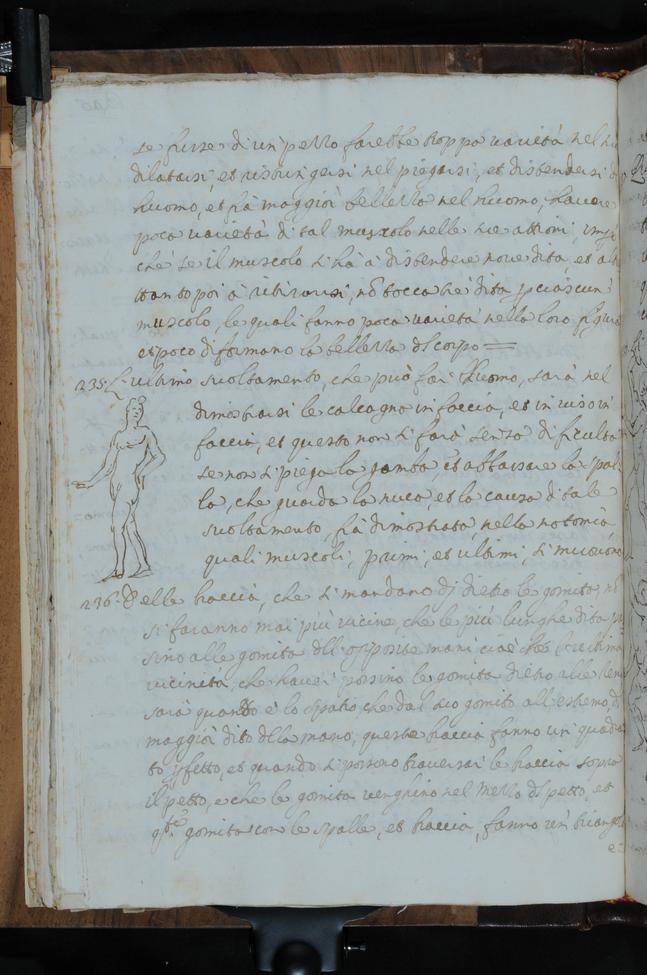 se fusse di un' pezzo farebbe troppa varietà nel
dilatarsi, et ristringersi nel piegarsi, et distendersi
huomo, et fià maggior bellezza nel huomo, havere
poca varietà di tal muscolo nelle sue attioni,
che se il muscolo si hà à distendere nove dita, et
tanto poi à ritirarsi, nō tocca tre dita p ciascun'
muscolo, le quali fanno poca varietà nella loro figura
et poco diformano la bellezza dl corpo =
235. L'ultimo svoltamento, che può far' l'huomo, sarà nel
dimostrarsi le calcagno in faccia, et in viso in
faccia, et questo non si farà senza dificultà
se non si piega la gamba, et abbassare la spal
la, che guarda la nuca, et la causa di tale
svoltamento fià dimostrata nella notomia,
quali muscoli, primi, et ultimi, si muovono
236. Delle braccia, che si mandano di dietro le gomita, nō
si faranno mai più vicine, che le più lunghe dita
sino alle gomita dll opposite mani cioè che l'ultima
vicinità, che haver' possino le gomita dietro alle
sarà quanto è lo spatio, che dal suo gomito all' estremo d
maggior dito della mano, queste braccia fanno un' quadra
to pfetto, et quando si possono traversar le braccia sopra
il petto, e che le gomita venghino nel mezzo dl petto, et
qste gomita con le spalle, et braccia, fanno un' triangol
e=